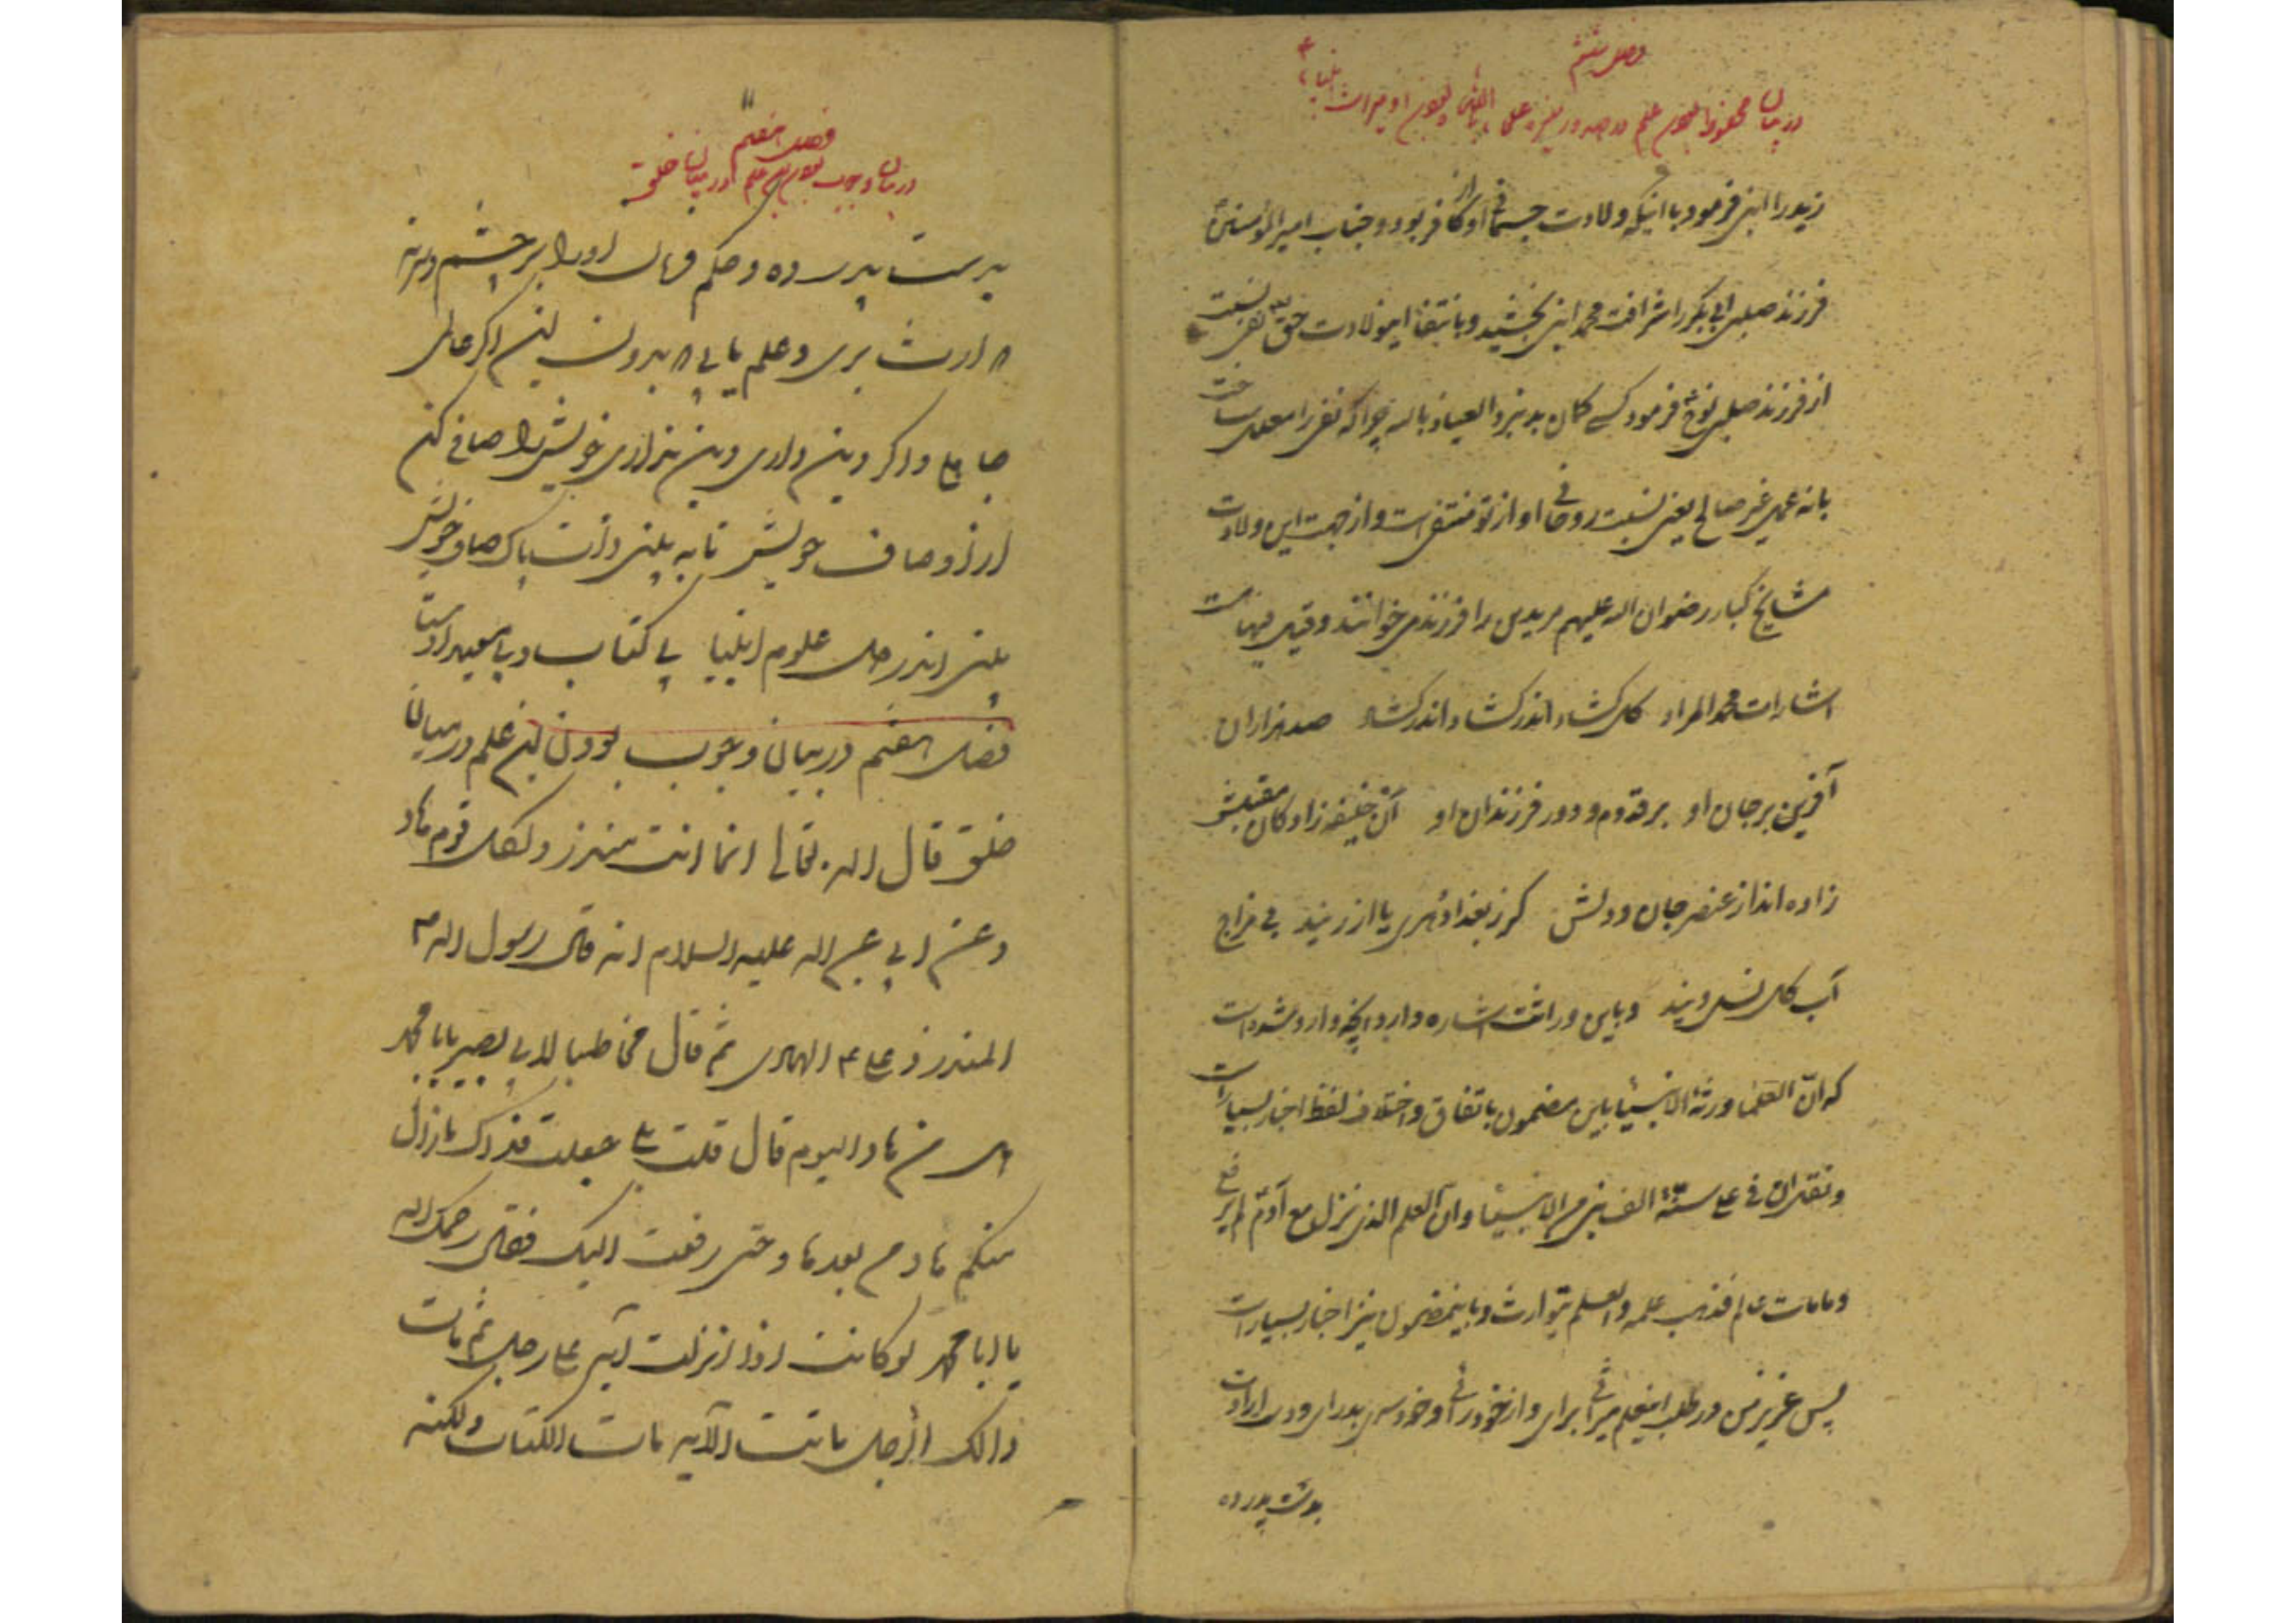 فصل ششم
در بیان محفوظ بودن علم در صدور
زید را ابنی فرمود با اینکه ولادت جسمانی او از کافر بود و جناب امیر المؤمنین
فرزند صلبی ابی بکر را شرافت محمد ابنی بخشید و بانتفا این ولادت حق نفی نسبت
از فرزند صلبی نوح فرمود کسی کمان بد نبرد العیاذ بالله چرا که نفی را معلل ساخت
بانه عمل غیر صالح یعنی نسبت روحانی او از تو منتفی است و از جهت این ولادت
مشایخ کبار رضوان الله علیهم مریدین را فرزند می خوانند و قیل فیها ست
اشارات محمد المراد کل کشاد اندر کشاد اندر کشاد صد هزاران
آفرین بر جان او بر قدوم و دور فرزندان او آن خلیفه زادکان مقبلش
زاده اند از عنصر جان و دلش کر ز بغداد و هری یا از ریند بی مزاج
آب کل نسل ویند و باین وراثت اشاره دارد آنچه وارد شده است
که ان العلما ورثة الانبیا باین مضمون باتفاق و اختلاف لفظ اخبار بسیار است
و نقل ان فی علی سنة الف نبی من الانبیا وان العلم الذی نزل مع آدم لم یرفع
و ما مات عالم فذهب علمه والعلم یتوارث و باینمضمون نیز اخبار بسیار است
پس عزیز من در طلب اینعلم میراثی برای و از خودرائی و خودسری بدر ای و دست ارادت
بدست پدر ده
۱۱
فصل هفتم
در بیان وجوب بودن این علم در میان خلق
بدست پدر ده و حکم فرمان او را بر چشم و سر نه
تا ارث بری و علم یابی تا بدون این اکر عالمی
جاهلی و اکر دین داری دین نداری خویش را صافی کن
از اوصاف خویش تا به بینی ذات پاک صاف خویش
بینی اندر دل علوم انبیا بی کتاب و بی معید اوستا
فصل هفتم در بیان وجوب بودن این علم در میان
خلق قال الله تعالی انما انت منذر و لکل قوم هاد
و عن ابی عبد الله علیه السلام انه قال رسول الله ص
المنذر و علی ع الهادی ثم قال مخاطبا لابی بصیر یابا محمد
هل من هاد الیوم قال قلت بلی جعلت فداک ما زال
منکم هاد من بعد هاد حتی رفعت الیک فقال رحمک الله
یا ابا محمد لو کانت اذا انزلت آیه علی رجل ثم مات
ذالک الرجل ماتت الآیه مات الکتاب ولکنه